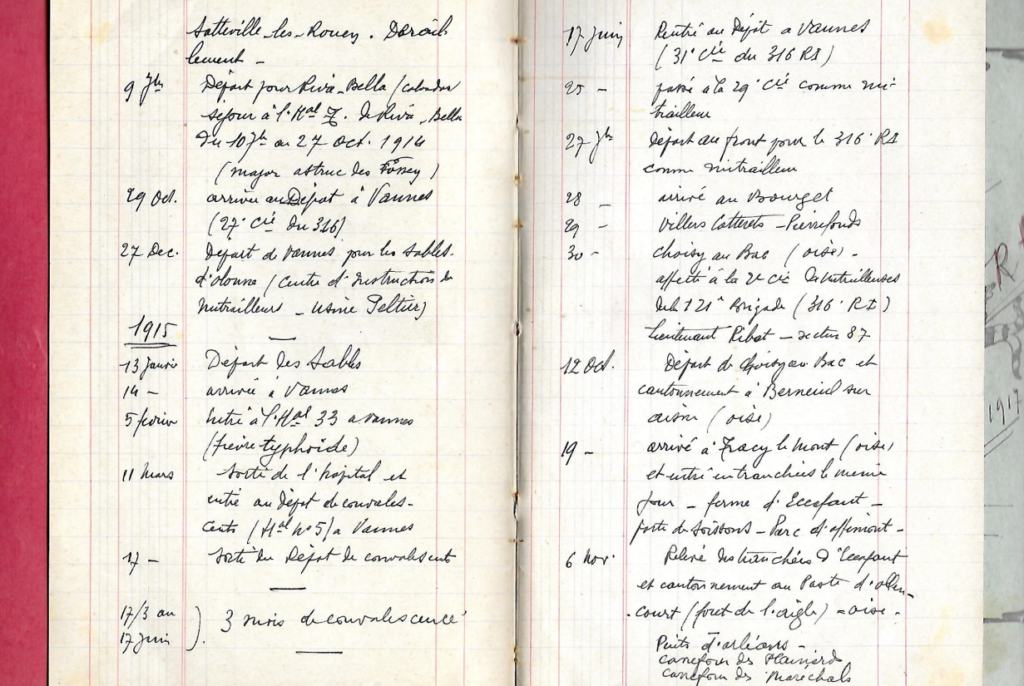 Sotteville-les-Rouen. Dérail
lement -
9 7bre Départ pour Riva-Bella (Calvados
séjour à l'Hal de Riva-Bella
Du 10 7bre au 27 Oct. 1914
(major astruc des
29 Oct. arrivée au Dépôt à Vannes
(27e Cie du 316)
27 Dec. Départ de Vannes pour les Sables-
d'olonne (Centre d'Instruction de
Mitrailleurs - usine Peltier)
1915
13 janvier Départ des Sables
14 - arrivée à Vannes
5 février Entré à l'Hal 33 a Vannes
(fièvre typhoïde)
11 Mars Sortie de l'hôpital et
entré au dépôt de convales-
cents (Hal n° 5) a Vannes
17 - Sortie du Dépôt de convalescents
17/3 au
17 juin ). 3 mois de convalescence
17 juin Rentré au Dépôt a Vannes
(31e Cie du 316 RI)
25 - passé à la 29e Cie comme mi-
trailleur
27 7bre départ au front pour le 316e RI
comme mitrailleur
28 - arrivé au Bourget
29 - Villers Cotterets - Pierrefonds
30 - Choisy au Bac (oise) -
affecté à la 2e Cie de Mitrailleuses
de la 121e Brigade (316e RI)
Lieutenant Ribot - secteur 87
12 Oct. Départ de Choisy au Bac et
cantonnement à Berneuil sur
aisne (oise)
19 - arrivé à Tracy le Mont (oise)
et entré en tranchées le meme
jour - ferme d'Ecafaut -
poste de Soissons - Parc d'offémont -
6 Nov. Relevé des tranchées d'Ecafaut
et cantonnement au Poste d'ollen-
court (foret de l'aigle) - oise -
Puits d'orléans -
carrefour des
carrefour des Maréchals
R
1917